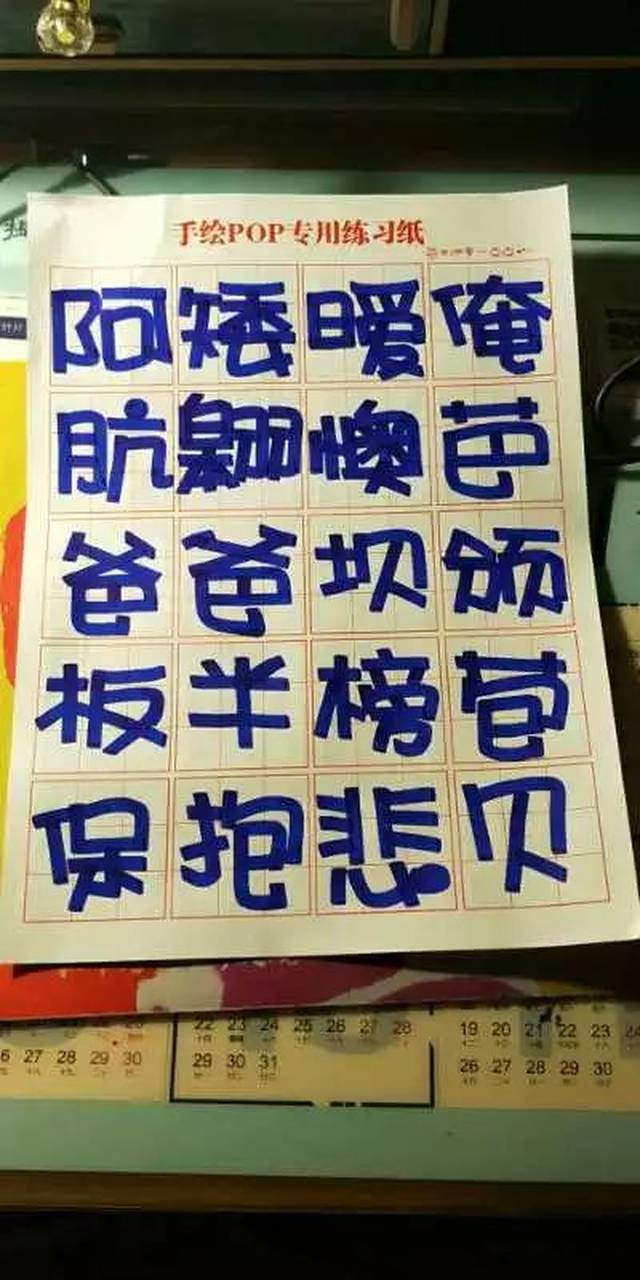 手绘POP专用练习纸
阿矮暧俺
肮翱懊芭
爸爸坝颁
板半榜苞
保抱悲贝
22 23 24 25 26 27 28
19 20 21 22 23 24
27 28 29 30
29 30 31
26 27 28 29 30